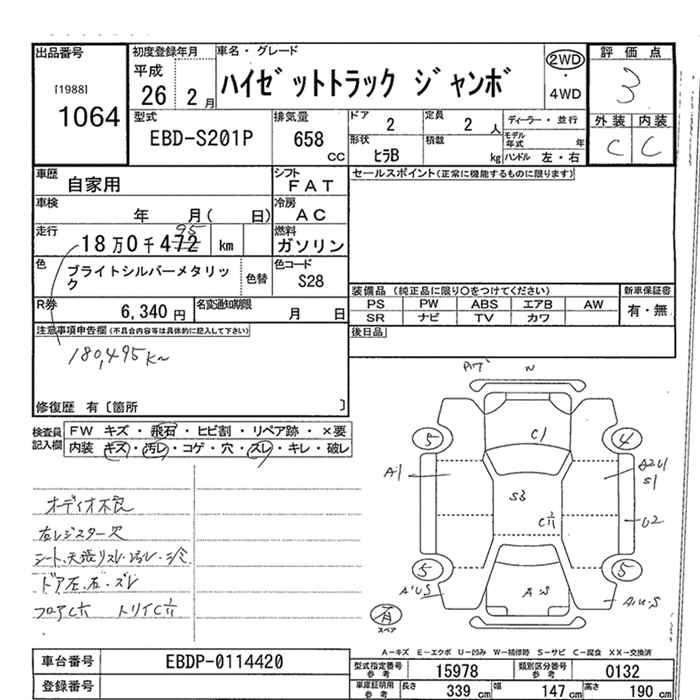 出品番号
[1988]
1064
初度登録年月
平成
26 2 月
車名・グレード
ハイゼットトラック ジャンボ
2WD
・
4WD
評価点
3
外装 内装
C C
型式
EBD-S201P
排気量
658
cc
ドア
2
定員
2 人
ディーラー・並行
形状
ヒラB
積載
kg
モデル年式
年
ハンドル 左・右
車歴
自家用
シフト
FAT
セールスポイント(正常に機能するものに限ります)
車検
年 月( 日)
冷房
AC
走行
18万0千472 km
95
燃料
ガソリン
色
ブライトシルバーメタリック
色替
色コード
S28
R券
6,340 円
名変通知期限
月 日
装備品 (純正品に限り○をつけてください)
新車保証書
PS PW ABS エアB AW
有・無
SR ナビ TV カワ
後日品
注意事項申告欄(不具合内容等は具体的に記入して下さい)
180,495km
修復歴 有〔箇所 〕
検査員記入欄
FW キズ・飛石・ヒビ割・リペア跡・×要
内装 キズ・汚レ・コゲ・穴・スレ・キレ・破レ
オーディオ不良
右レジスター欠
ドア左、右・ズレ
C1
5
4
A1
A2U1
S1
S3
U2
5
5
AUS
スペア
A-キズ E-エクボ U-凹み W-補修跡 S-サビ C-腐食 XX-交換済
車台番号
EBDP-0114420
登録番号
型式指定番号
参考
15978
類別区分番号
参考
0132
車庫証明用
参考
長さ
339 cm
幅
147 cm
高さ
190 cm